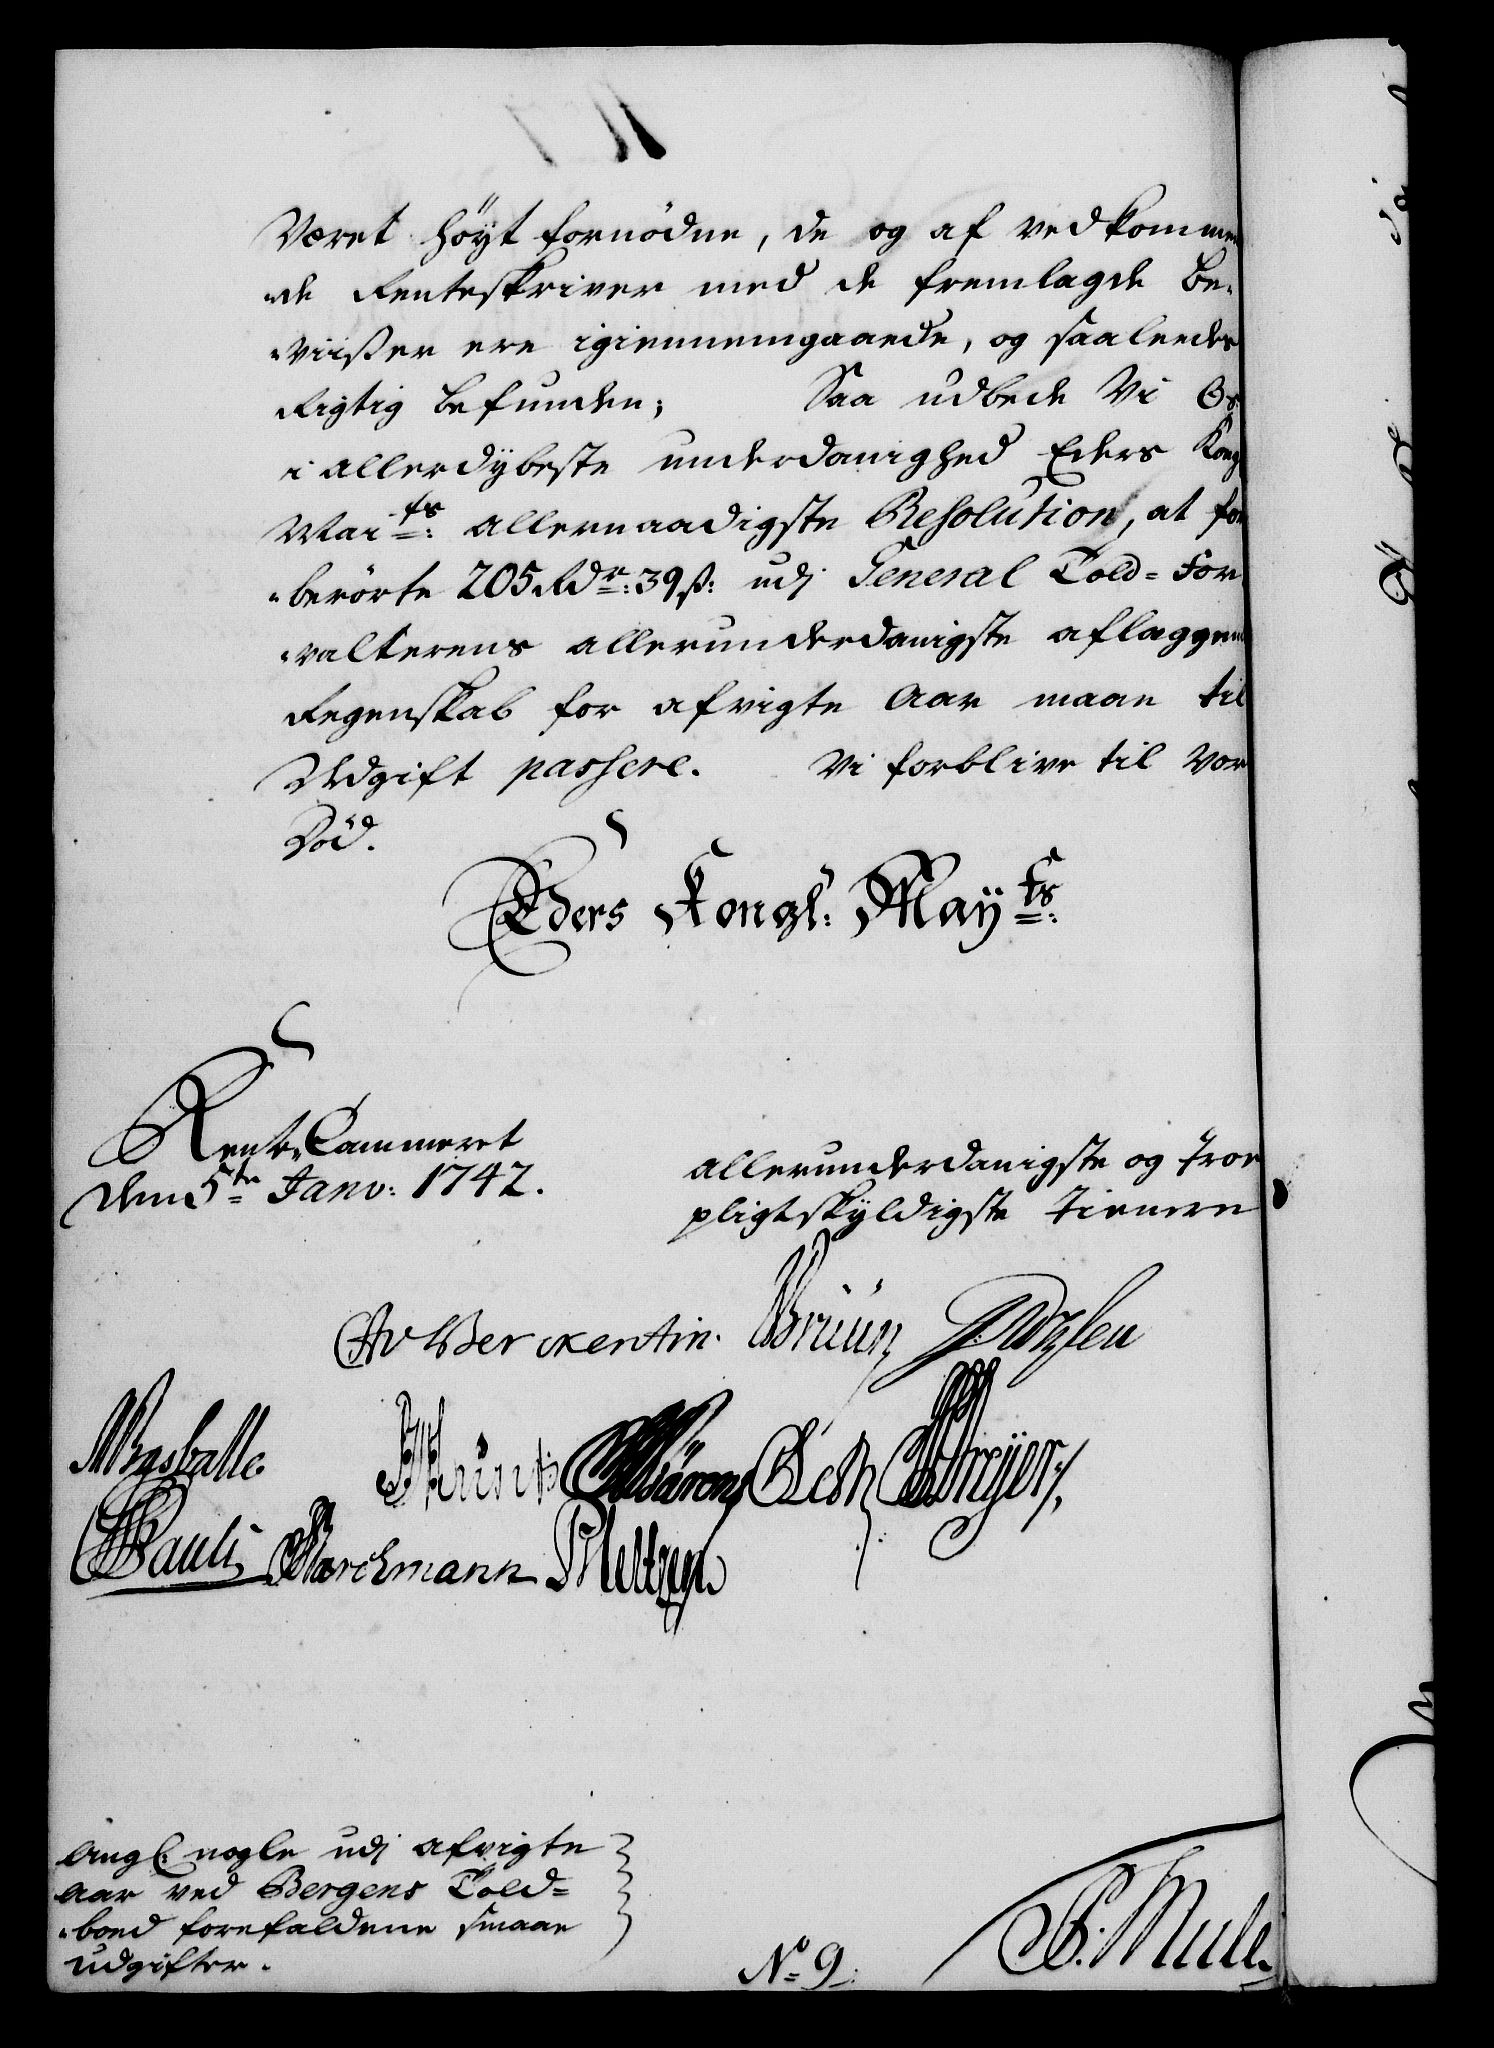 Været höyt fornödne, de og af vedkommen
„de Renteskriver med de fremlagde Be-
„viißer ere igiennemgaaede, og saaleedes
Rigtig befunden; Saa udbede Vi Os
i allerdÿbeste underdanighed Eders Kongl
Mai<sup>ts</sup>: allernaadigste Resolution, at for
„berörte 205 Rd<sup>r</sup>: 39 ß: udj General Told-For
„valterens allerunderdanigste aflaggende
Regenskab for afvigte Aar maae til
Udgift passere. Vi forblive til Vor
Död.
Eders Kongl: Maÿ<sup>ts</sup>:
Rente Cammeret
den 5<sup>te</sup> Janv: 1742.
allerunderdanigste og troe
pligtskÿldigste tienere
CAvBerckentin. Bruun
Pauli Borchmann
Ang: nogle udj afvigte
Aar ved Bergens Told-
„boed forefaldene smaae
udgifter.
N° 9
Mule.